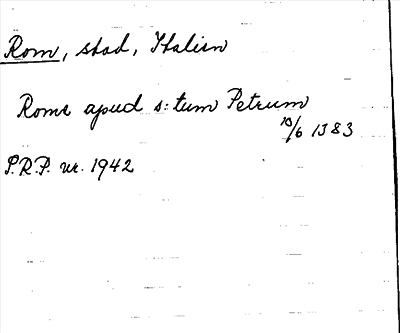 Rom, stad, Italien
Rome apud s:tum Petrum
13/6 1383
P.R.P. nr. 1942